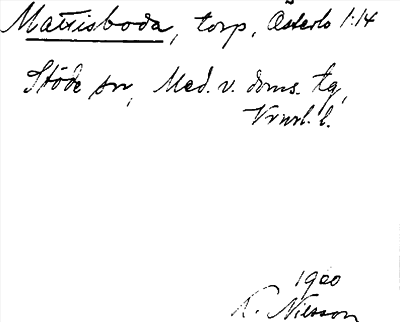 Mattisboda, torp, Österlo 1:14
Stöde sn, Med. v. doms. tg,
Vnrl. l.
1960
K. Nilsson